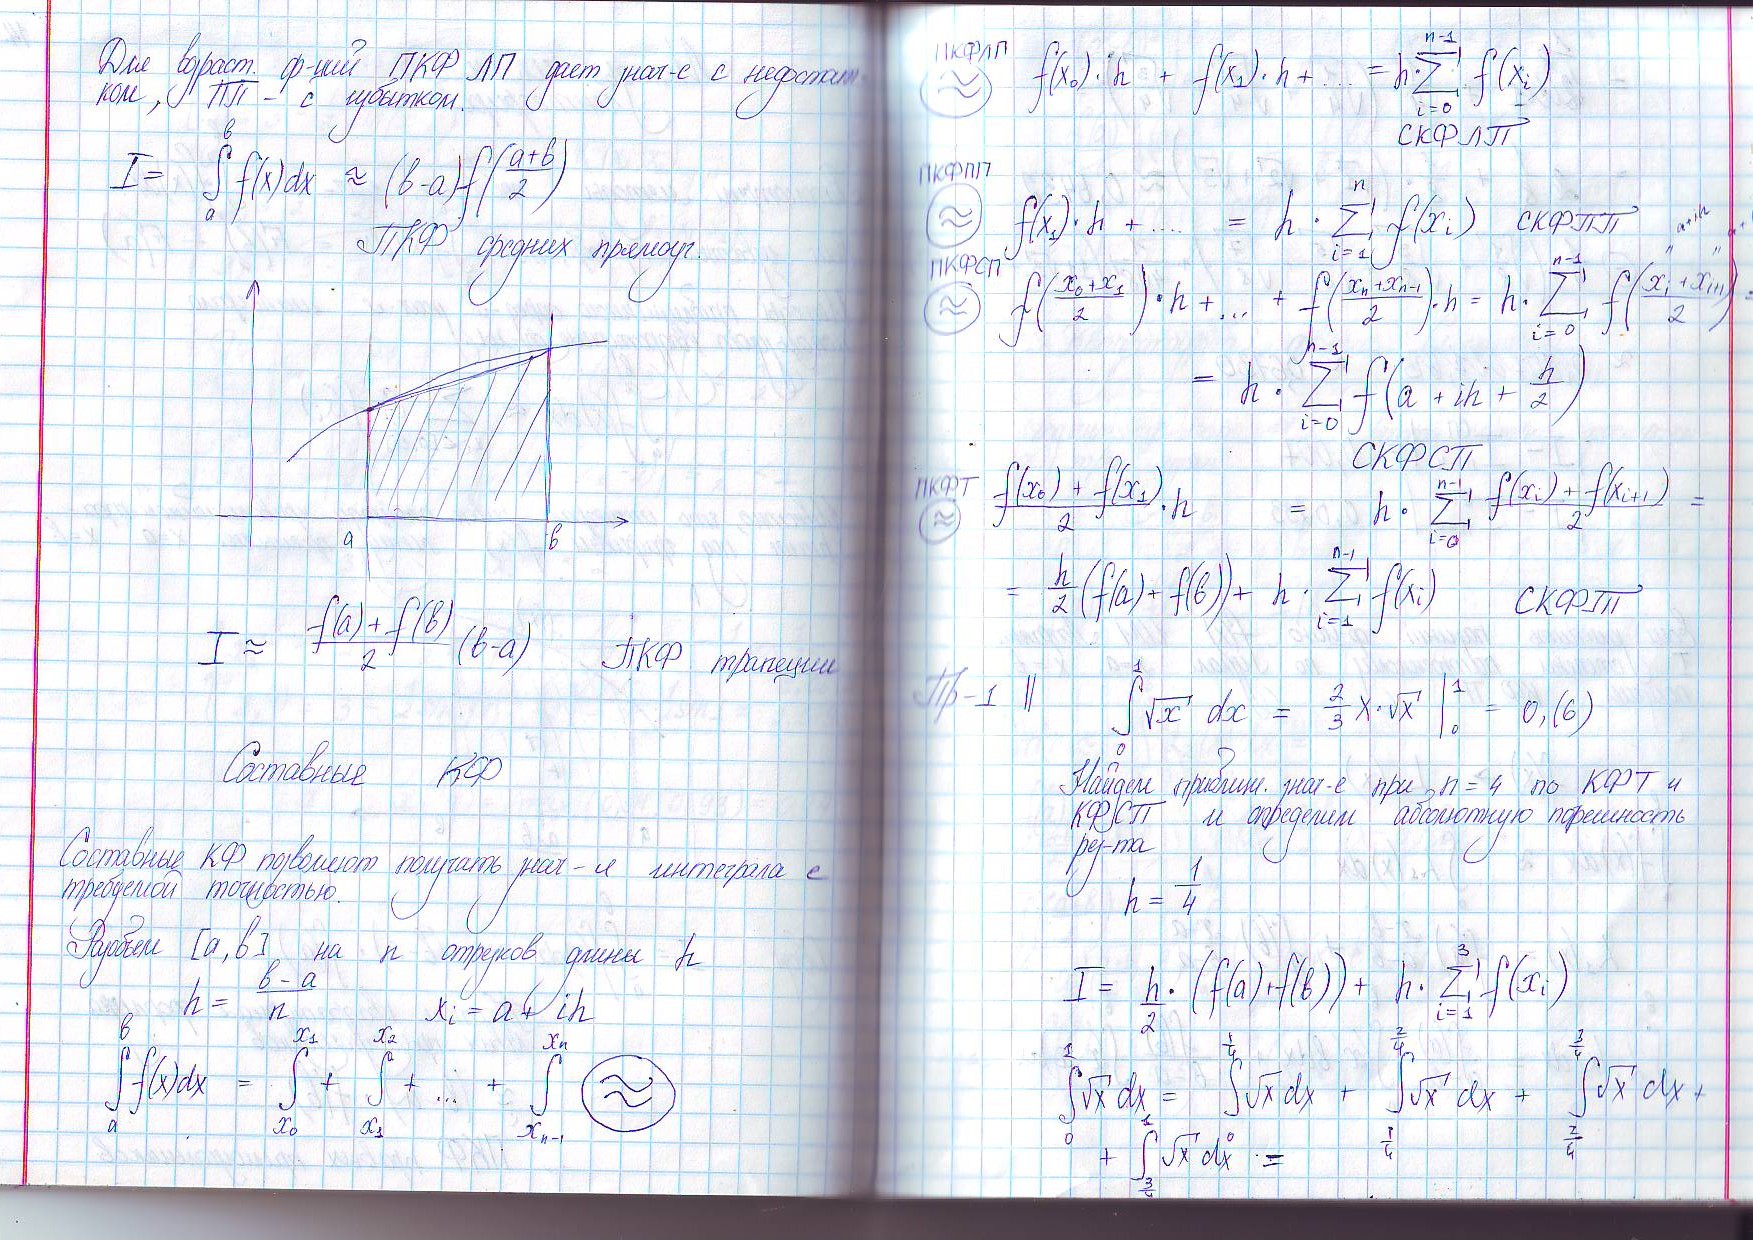 Для возраст. ф-ций ПКФ ЛП дает знач-е с недостат
ком, ПП - с избытком.
I = ∫_a^b f(x)dx ≈ (b-a) f((a+b)/2)
ПКФ средних прямоуг.
a b
I ≈ (f(a)+f(b))/2 (b-a) ПКФ трапеции
Составные КФ
Составные КФ позволяют получать знач-я интеграла с
требуемой точностью.
Разобьем [a,b] на n отрезков длины h
h = (b-a)/n x_i = a + ih
∫_a^b f(x)dx = ∫_{x_0}^{x_1} + ∫_{x_1}^{x_2} + ... + ∫_{x_{n-1}}^{x_n} ≈
ПКФЛП ≈ f(x_0)·h + f(x_1)·h + ... = h·∑_{i=0}^{n-1} f(x_i)
СКФЛП
ПКФПП ≈ f(x_1)·h + .... = h·∑_{i=1}^{n} f(x_i) СКФПП
ПКФСП ≈ f((x_0+x_1)/2)·h + ... + f((x_n+x_{n-1})/2)·h = h·∑_{i=0}^{n-1} f((x_i+x_{i+1})/2) =
a+ih
= h·∑_{i=0}^{n-1} f(a + ih + h/2)
СКФСП
ПКФТ ≈ (f(x_0)+f(x_1))/2·h = h·∑_{i=0}^{n-1} (f(x_i)+f(x_{i+1}))/2 =
= h/2 (f(a)+f(b)) + h·∑_{i=1}^{n-1} f(x_i) СКФТ
Пр-1 || ∫_0^1 √x dx = 2/3 x·√x |_0^1 = 0,(6)
Найдем приближ. знач-е при n=4 по КФТ и
КФСП и определим абсолютную погрешность
рез-та
h = 1/4
I = h/2·(f(a)+f(b)) + h·∑_{i=1}^{3} f(x_i)
∫_0^1 √x dx = ∫_0^{1/4} √x dx + ∫_{1/4}^{2/4} √x dx + ∫_{2/4}^{3/4} √x dx +
+ ∫_{3/4}^1 √x dx =